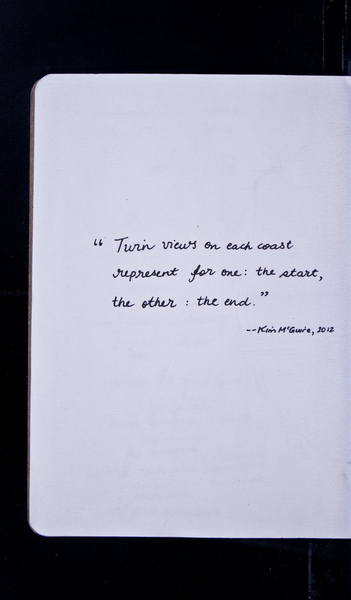 “ Twin views on each coast
represent for one: the start,
the other : the end.”
--Kim McGuire, 2012